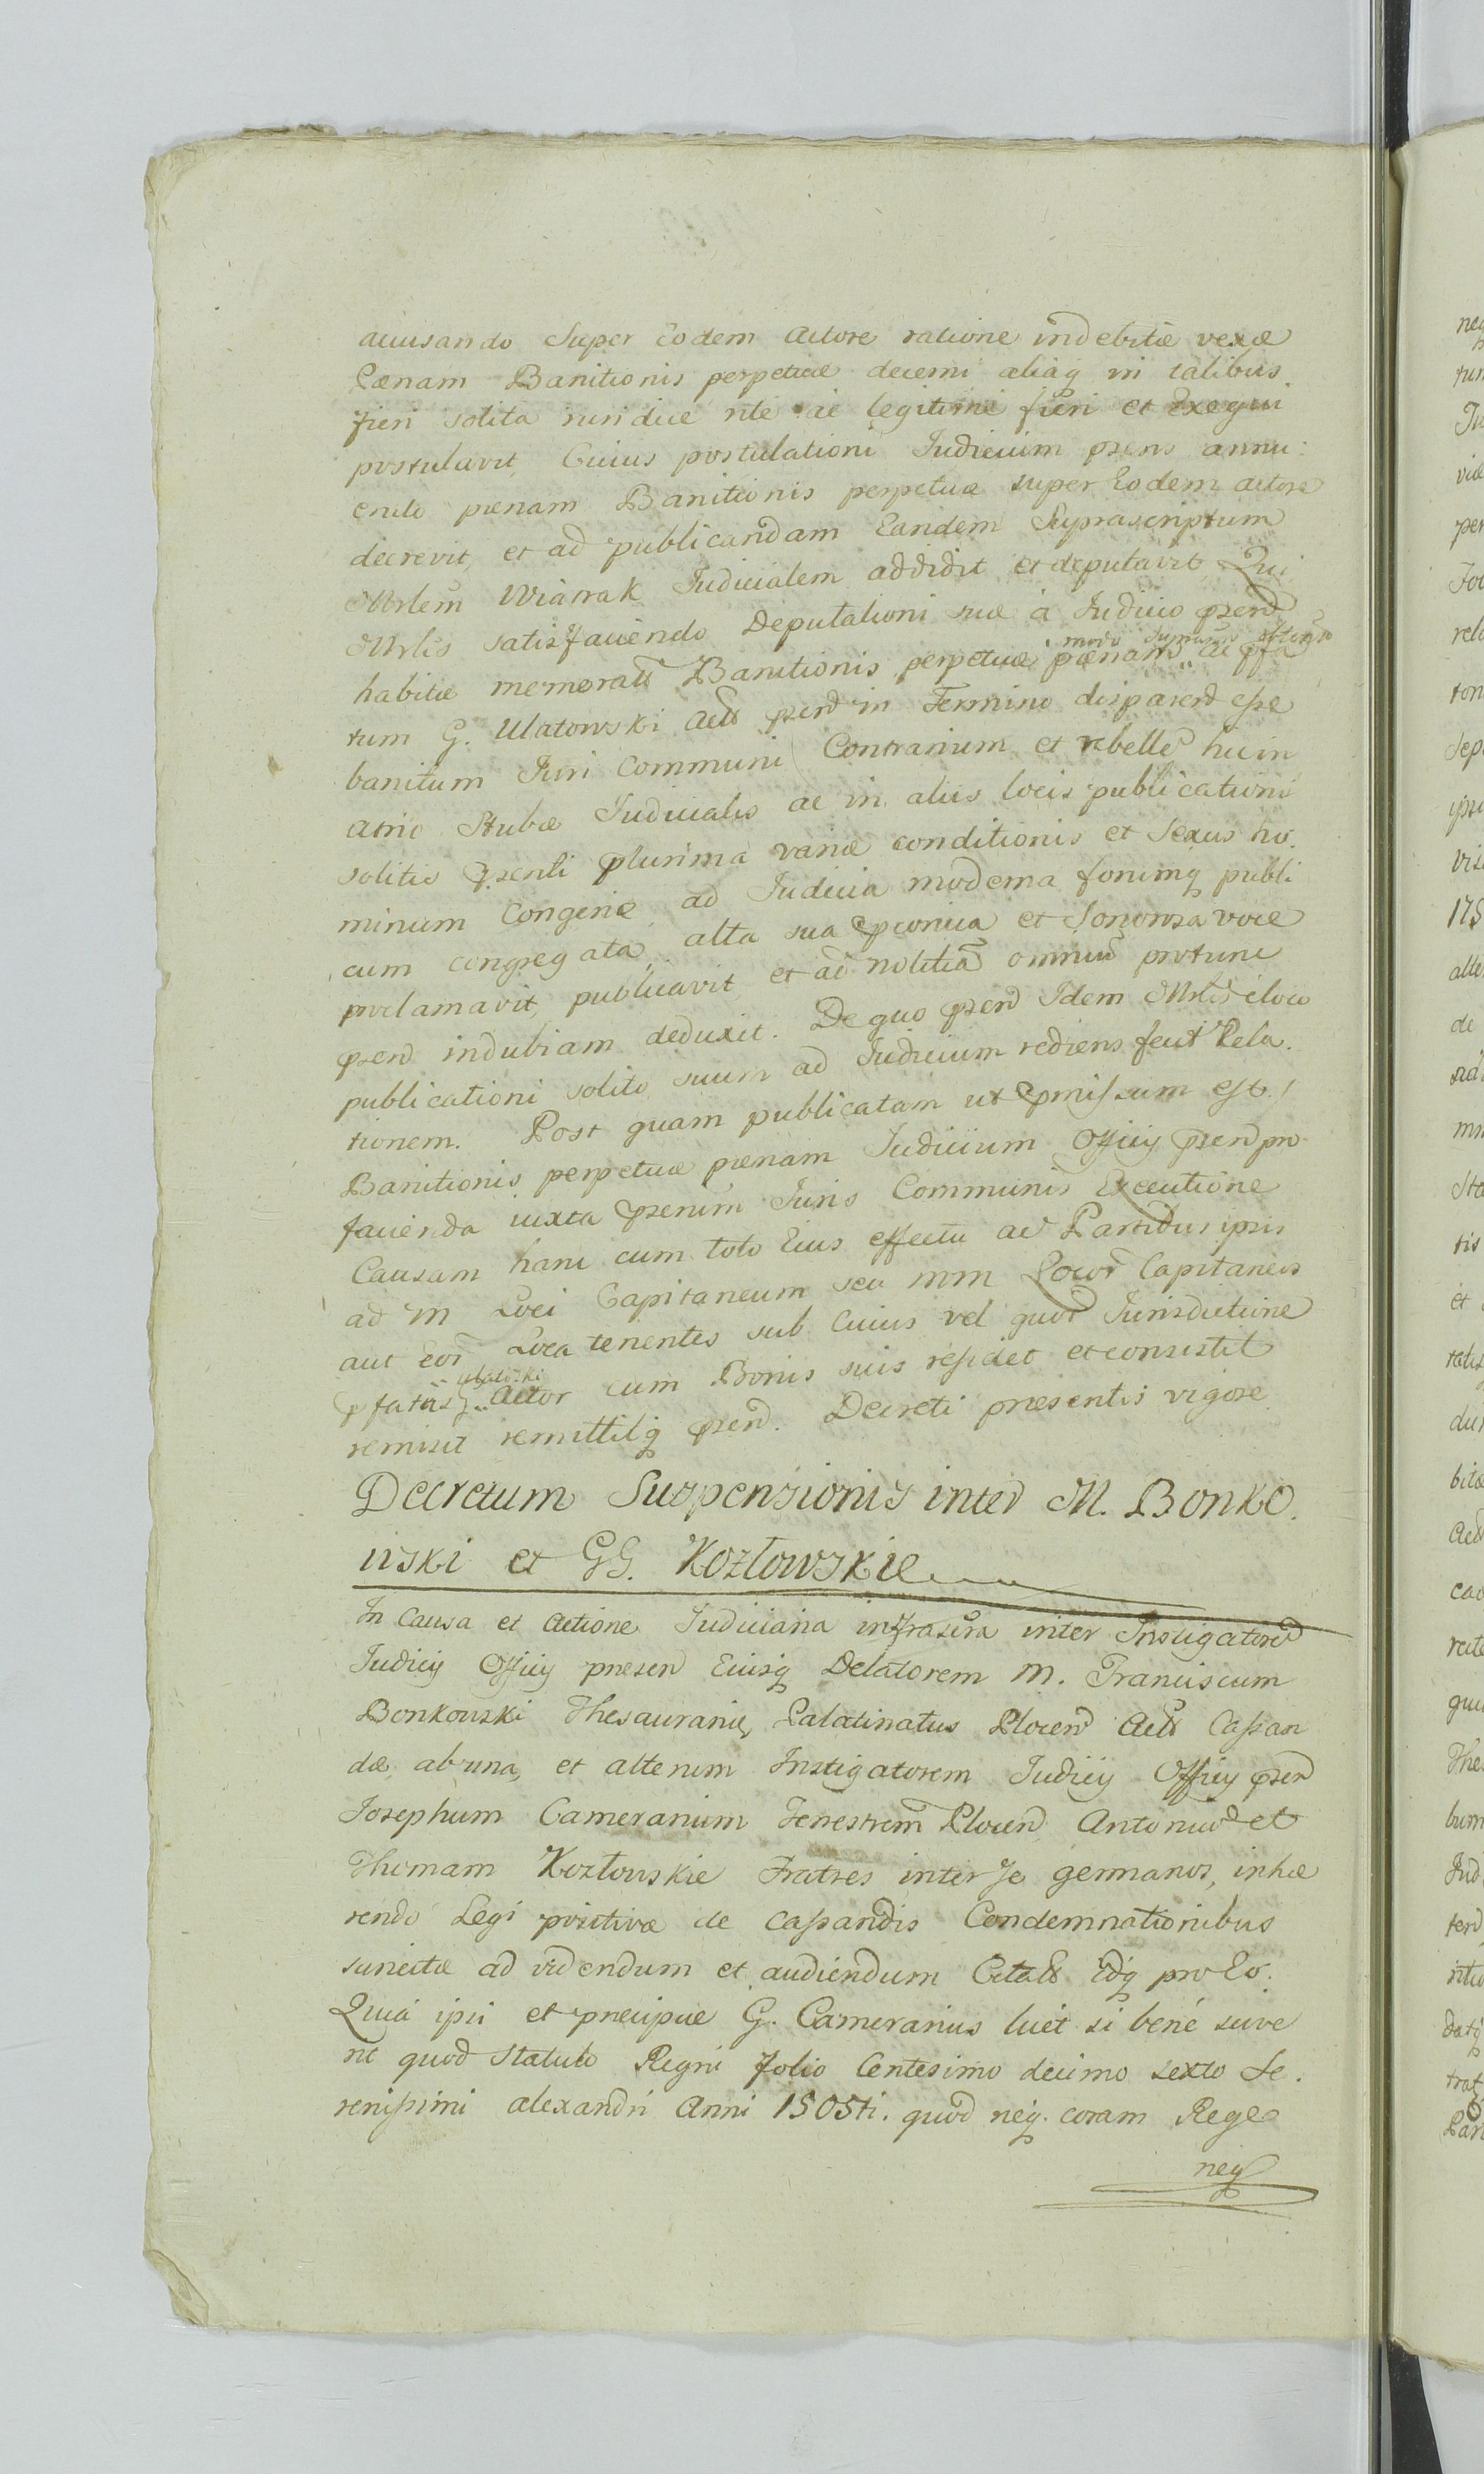 accusando Super Eodem Actore ratione indebitæ vexæ
Pænam Banitionis perpetuæ decerni aliaq in talibus
fieri solita iuridice rite ac legitime fieri et exequi
postulavit, Cuius postulationi Iudicium psens annu:
endo pænam Banitionis perpetuæ super Eodem actore
decrevit, et ad publicandam Eandem Suprascriptum
Mrlem Wiatrak Iudicialem addidit et deputavit Qui
Mrlis satisfaciendo Deputationi suæ à Iudicio psend
modo
habitæ memorat Banitionis perpetuæ pænam ac pfa
tum G. Ulatowski Act psend in Termino disparend esse
banitum Iuri Communi Contrarium et rebelle hic in
atrio Stubæ Iudicialis ac in aliis locis publicationi
solitis psenti plurima variæ conditionis et Sexus ho.
minum Congerie ad Iudicia moderna forumq publi
cum congregata, alta sua pconica et Sonorosa voce
proclamavit, publicavit et ad notitiã omniũ protunc
psend indubiam deduxit. De quo psend Idem Mrlis e loco
publicationi solito suum ad Iudicium rediens fecit Rela.
tionem. Post quam publicatam ut pmissum est
Banitionis perpetuæ pænam Iudicium Officy psend pro
facienda iuxta psenim Iuris Communis Executione
Causam hanc cum toto Eius effectu ac Partibus ipsis
ad M Loci Capitaneum seu MM Locor Capitaneos
aut Eor Loca tenentes sub Cuius vel quor Iurisdictione
Ulatowski
pfatus G. Actor cum Bonis suis residet et consistit
remisit remittitq psend. Decreti præsentis vigore.
Decretum Suspensionis inter M. Bonko.
wski et GG. Kozłowskie
In Causa et Actione Iudiciaria infrascra inter Instigatorem
Iudicy Officy presen Eiusq Delatorem M. Franciscum
Bonkowski Thesaurariũ Palatinatus Plocen Act Cassan
dæ, ab una, et alterum Instigatorem Iudicy Officy psen
Iosephum Camerarium Terrestrem Plocen Antonium et
Thomam Kozłowskie Fratres inter Se germanos, inhæ
rendo Legi positivæ de Cassandis Condemnationibus
sancitæ ad videndum et audiendum Citat Idq pro Eo.
Quia ipsi et precipue G. Camerarius licet si bene scive
rit quod Statuto Regni folio Centesimo decimo sexto Se.
renissimi Alexandri Anni 1505ti. quod neq. coram Rege
neq